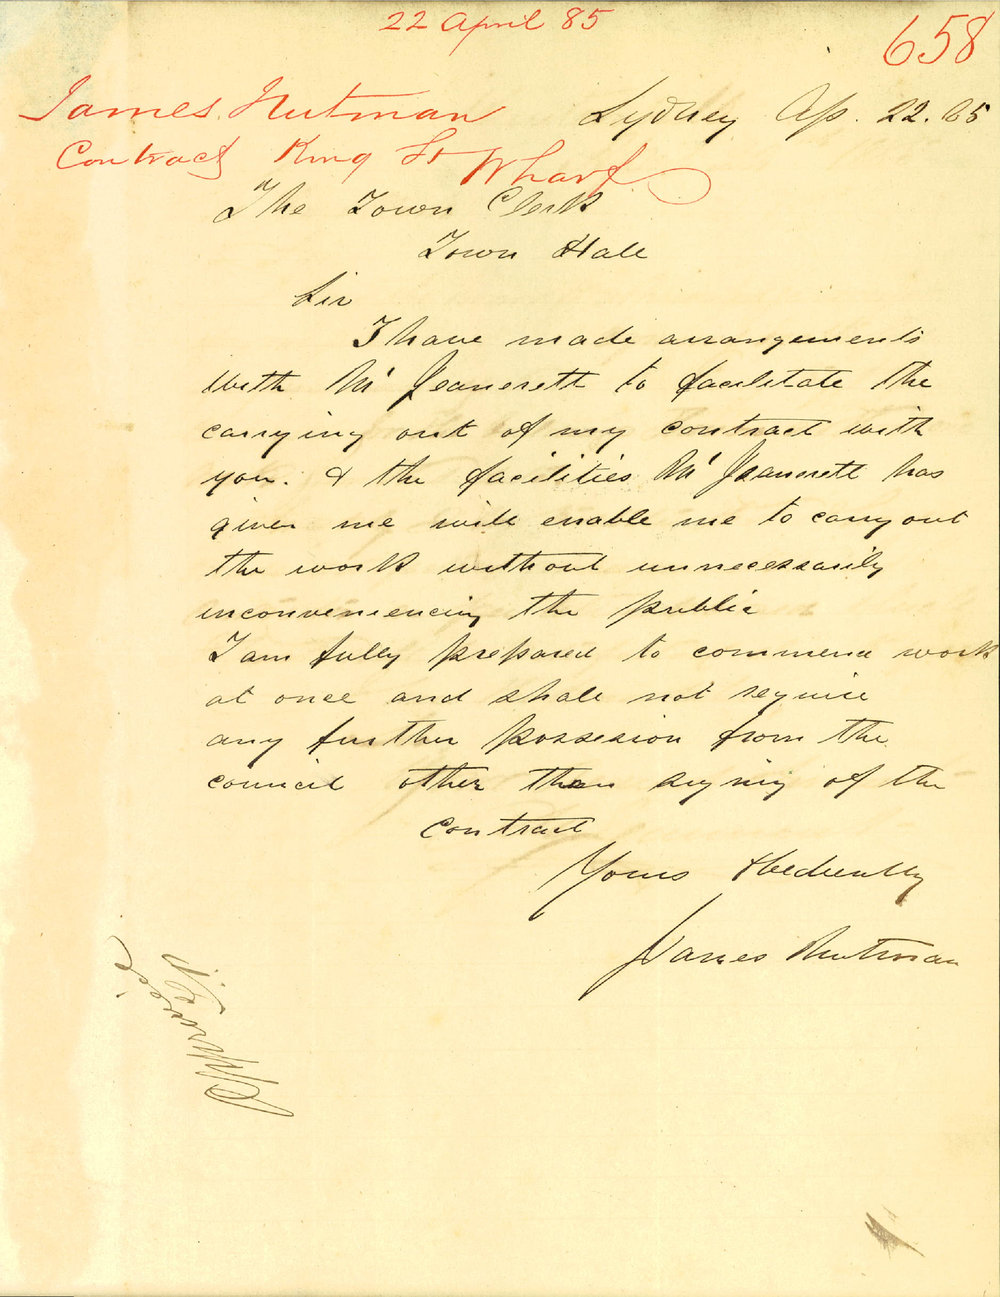 22 April 85
658
James Nutman
Contract King St Wharf
Sydney Ap. 22. 85
The Town Clerk
Town Hall
Sir
I have made arrangements
with Mr Jeanerett to facilitate the
carrying out of my contract with
you. & the facilities Mr Jeanerett has
given me will enable me to carry out
the work without unnecessarily
inconveniencing the public
I am fully prepared to commence work
at once and shall not require
any further possession from the
council other than signing of the
contract
Yours Obediently
James Nutman
Approved